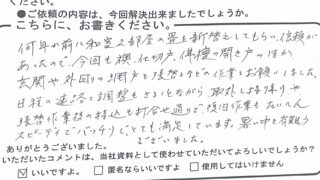 ください。
●ご依頼の内容は、今回解決出来ましたでしょうか。
こちらに、お書きください。
何年か前に和室2部屋の畳を新替えしてもらい、信頼が
あったので、今回も襖、仕切戸、仏檀の開き戸のほか
玄関や外回りの網戸を張替えなどの作業をお願いしました。
日程の連絡と調整もさることながら、取外し持帰りや
張替作業後の持込も打合せ通りで、復旧作業もたいへん
スピーディでバッチリ、とても満足しています。暑い中を有難う
ございました。
ありがとうございました。
いただいたコメントは、当社資料として使わせていただいてよろしいでしょうか？
☑いいですよ。 □匿名ならいいですよ □使用してはいけません